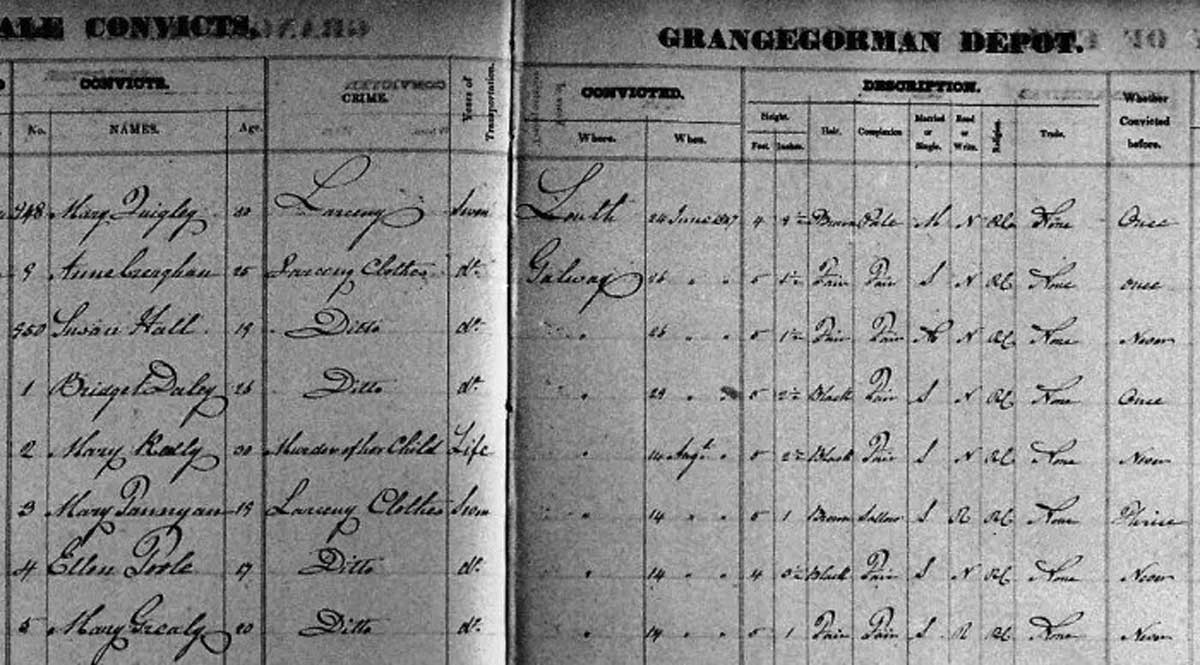 ALE CONVICTS, GRANGEGORMAN DEPOT.
CONVICTS. CRIME. Years of Transportation. CONVICTED. DESCRIPTION. Whether Convicted before.
No. NAMES. Age. Where. When. Height. Feet. Inches. Hair. Complexion Married or Single. Read or Write. Religion. Trade.
948 Mary Quigley Larceny Seven Louth 24 June 1847 4 Brown Pale M N RC None Once
9 Anne Creaghan 25 Larceny Clothes do. Galway 26 " " 5 Fair Fair S N RC None once
950 Susan Hall 19 Ditto do. " 26 " " 5 1½ Fair Fair N RC None Never
1 Bridget Daley 26 Ditto do. " 29 " " 5 2½ Black Fair S N RC None Once
2 Mary Kelly 30 Murder of her Child Life " 14 Augt. " 5 2½ Black Fair S N RC None Never
3 Mary Fannyan Larceny Clothes Seven " 14 " " 5 1 Brown Sallow S R RC None Thrice
4 Ellen Poole Ditto do. " 14 " " 4 Black Fair S N RC None Never
5 Mary Grealy 20 Ditto do. " 14 " " 5 1 Fair Fair S R RC None Never